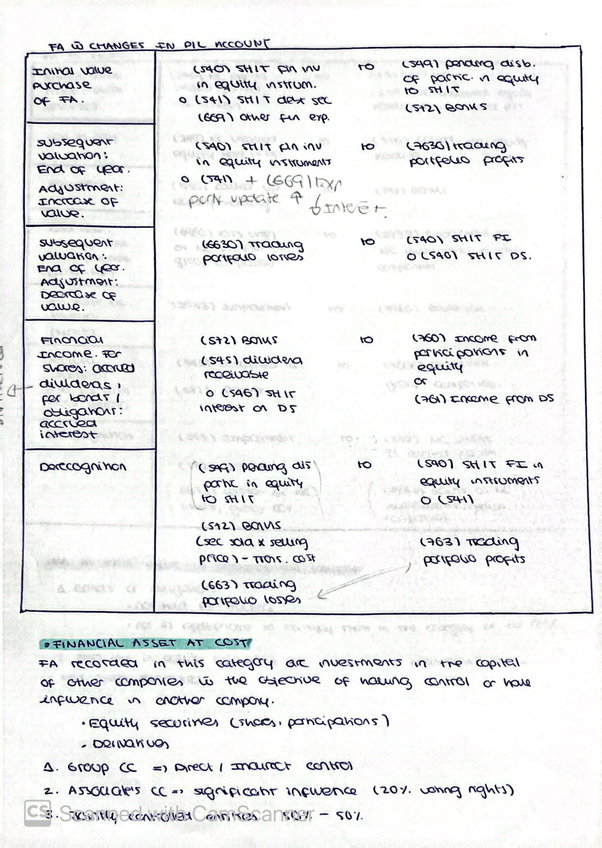 FA W CHANGES IN P/L ACCOUNT
Initial value
purchase
of FA.
(540) SHIT fin inv
in equity instrum.
o (541) SHIT debt sec
(669) other fin exp.
TO
(549) pending disb.
of partic. in equity
to SHIT
(572) Banks
Subsequent
valuation:
End of year.
Adjustment:
Increase of
value.
(540) SHIT fin inv
in equity instruments
o (541) + (669) Exp
pork update ↑ ↓ Interest.
to
(7630) trading
portfolio profits
Subsequent
valuation:
End of year.
Adjustment:
Decrease of
value.
(6630) Trading
portfolio losses
to
(540) SHIT FI
o (540) SHIT DS.
Financial
Income. For
shares: accrued
dividends,
per bonds /
obligations:
accrued
interest
(572) Banks
(545) dividend
receivable
o (546) SHIT
interest on DS
to
(760) Income from
participations in
equity
or
(761) Income from DS
Derecognition
(549) Pending dis
partic in equity
to SHIT
(572) Banks
(sec sold x selling
price) - trans. cost
(663) Trading
portfolio losses
to
(540) SHIT FI in
equity instruments
o (541)
(763) Trading
portfolio profits
• FINANCIAL ASSET AT COST
FA recorded in this category are investments in the capital
of other companies w the objective of having control or have
influence in another company.
• Equity securities (shares, participations)
• Derivatives
1. Group CC => Direct / Indirect control
2. Associates CC => significant influence (20% voting rights)
3. Jointly controlled entities 50% - 50%
CS Scanned with CamScanner